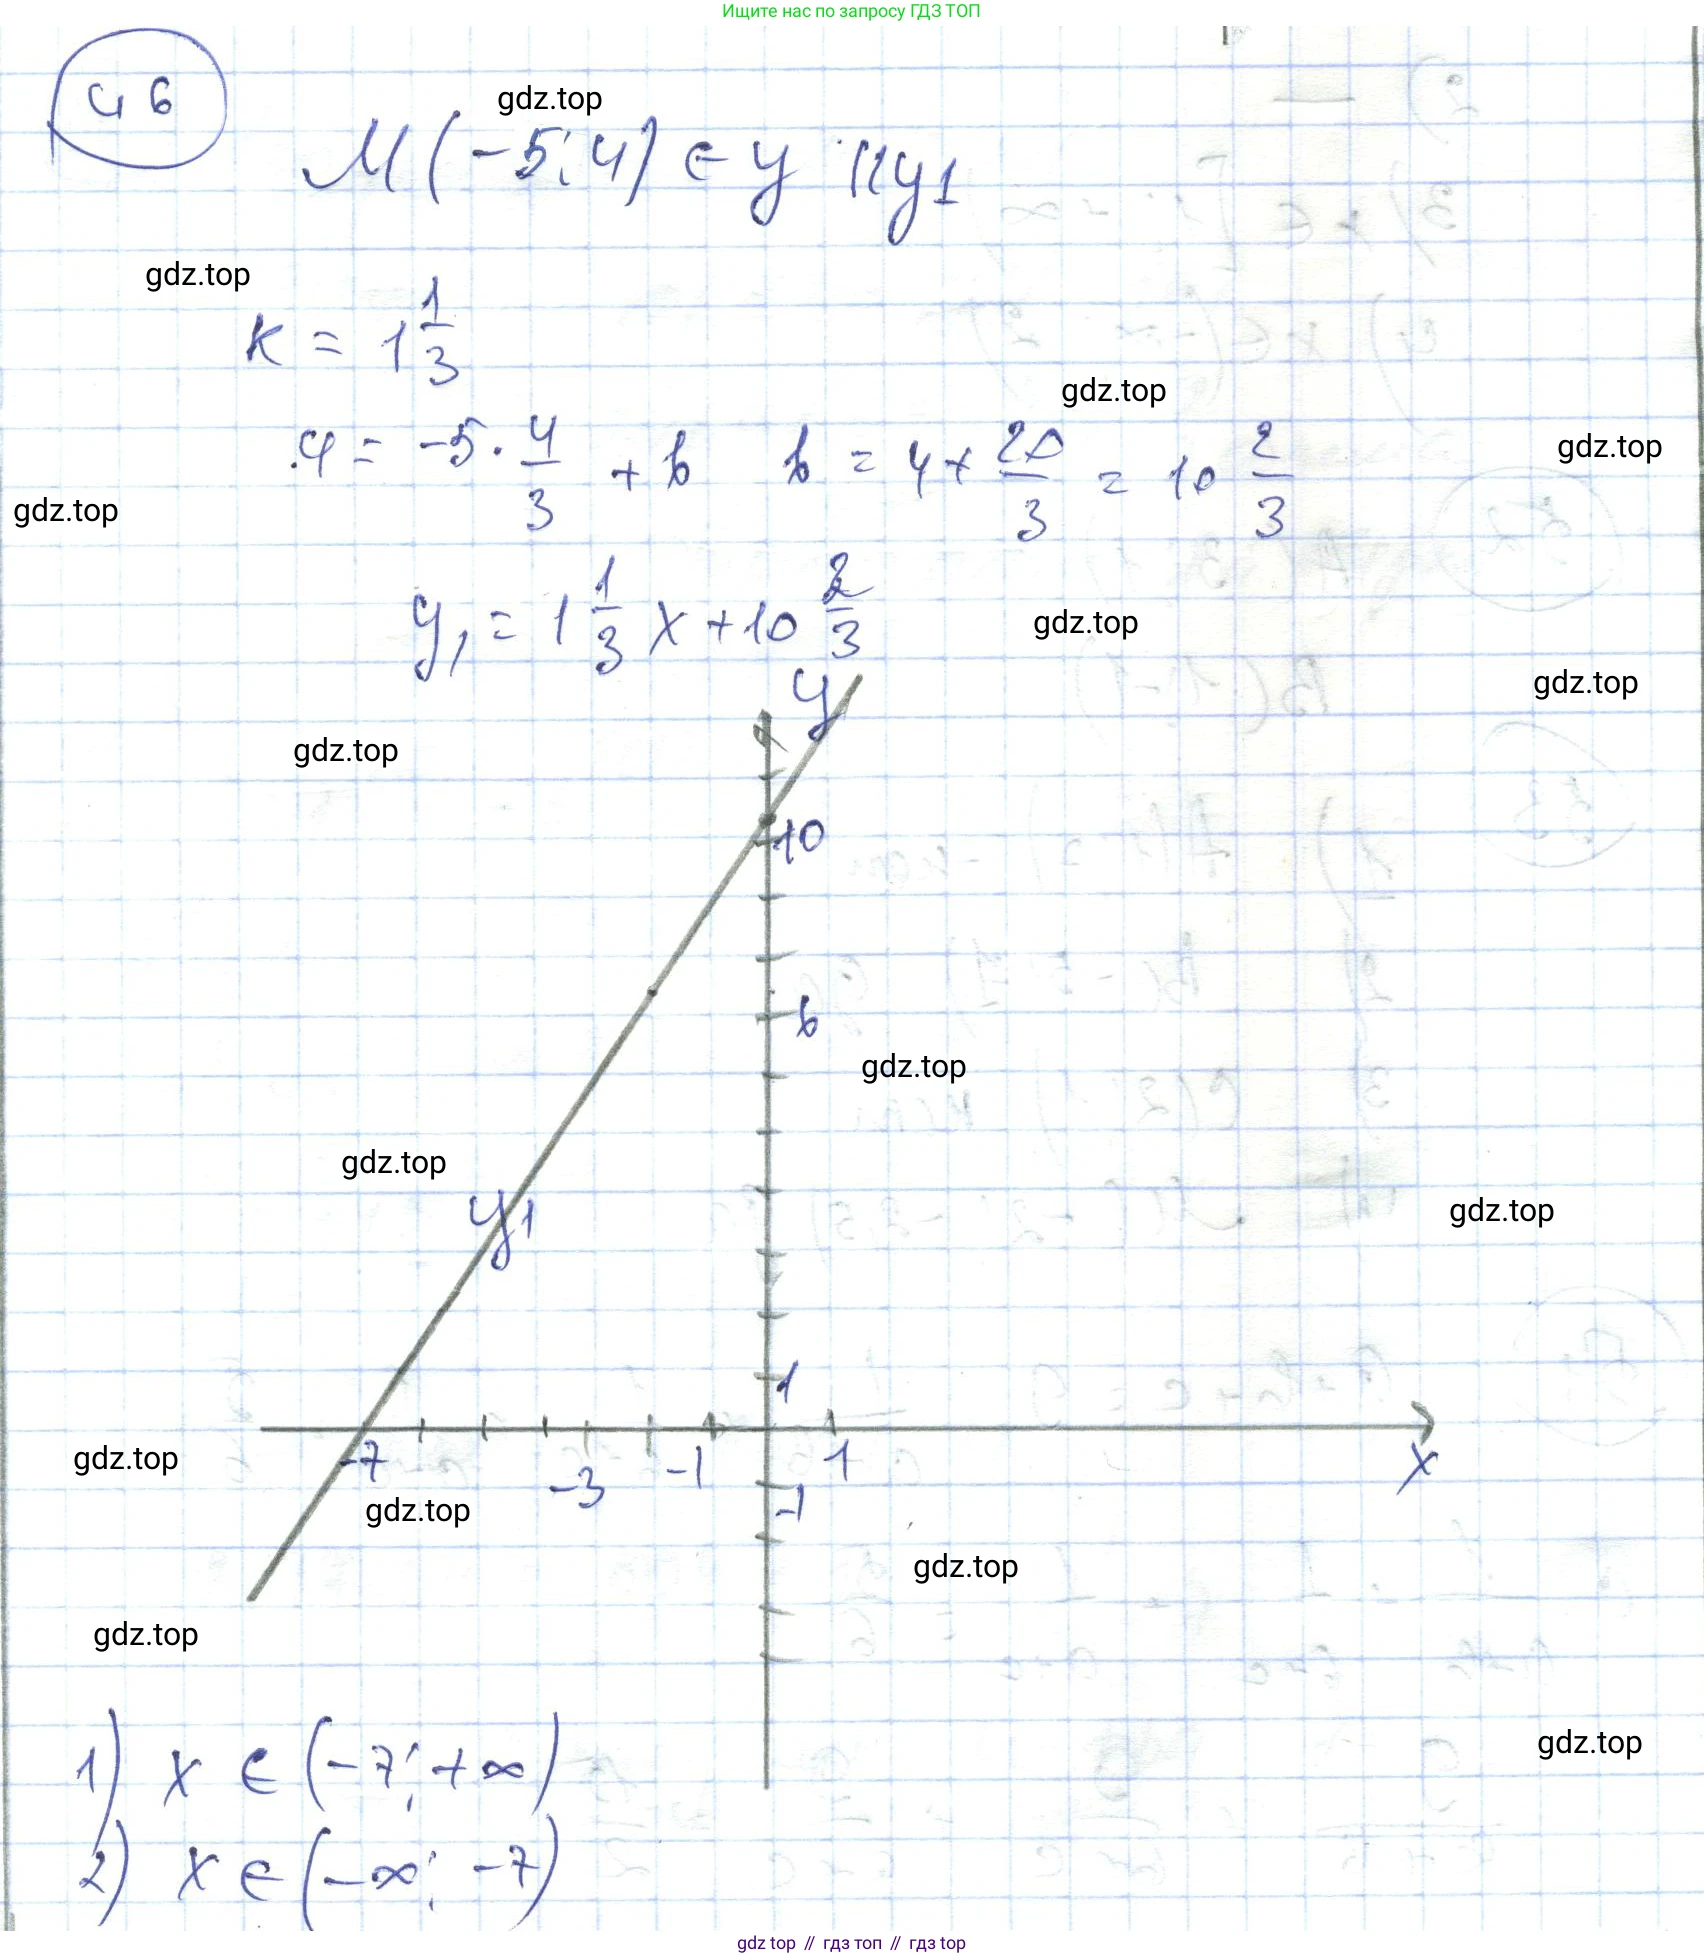 Ищите нас по запросу ГДЗ ТОП
46
gdz.top
M(-5;4) ∈ y || y1
gdz.top
k = 1 1/3
gdz.top
4 = -5 · 4/3 + b b = 4 + 20/3 = 10 2/3
gdz.top
gdz.top
y1 = 1 1/3 x + 10 2/3
gdz.top
y
gdz.top
gdz.top
10
6
gdz.top
gdz.top
y1
gdz.top
1
-7 -3 -1 1 x
gdz.top
-1
gdz.top
gdz.top
gdz.top
1) x ∈ (-7; +∞)
gdz.top
2) x ∈ (-∞; -7)
gdz top // гдз топ // гдз top